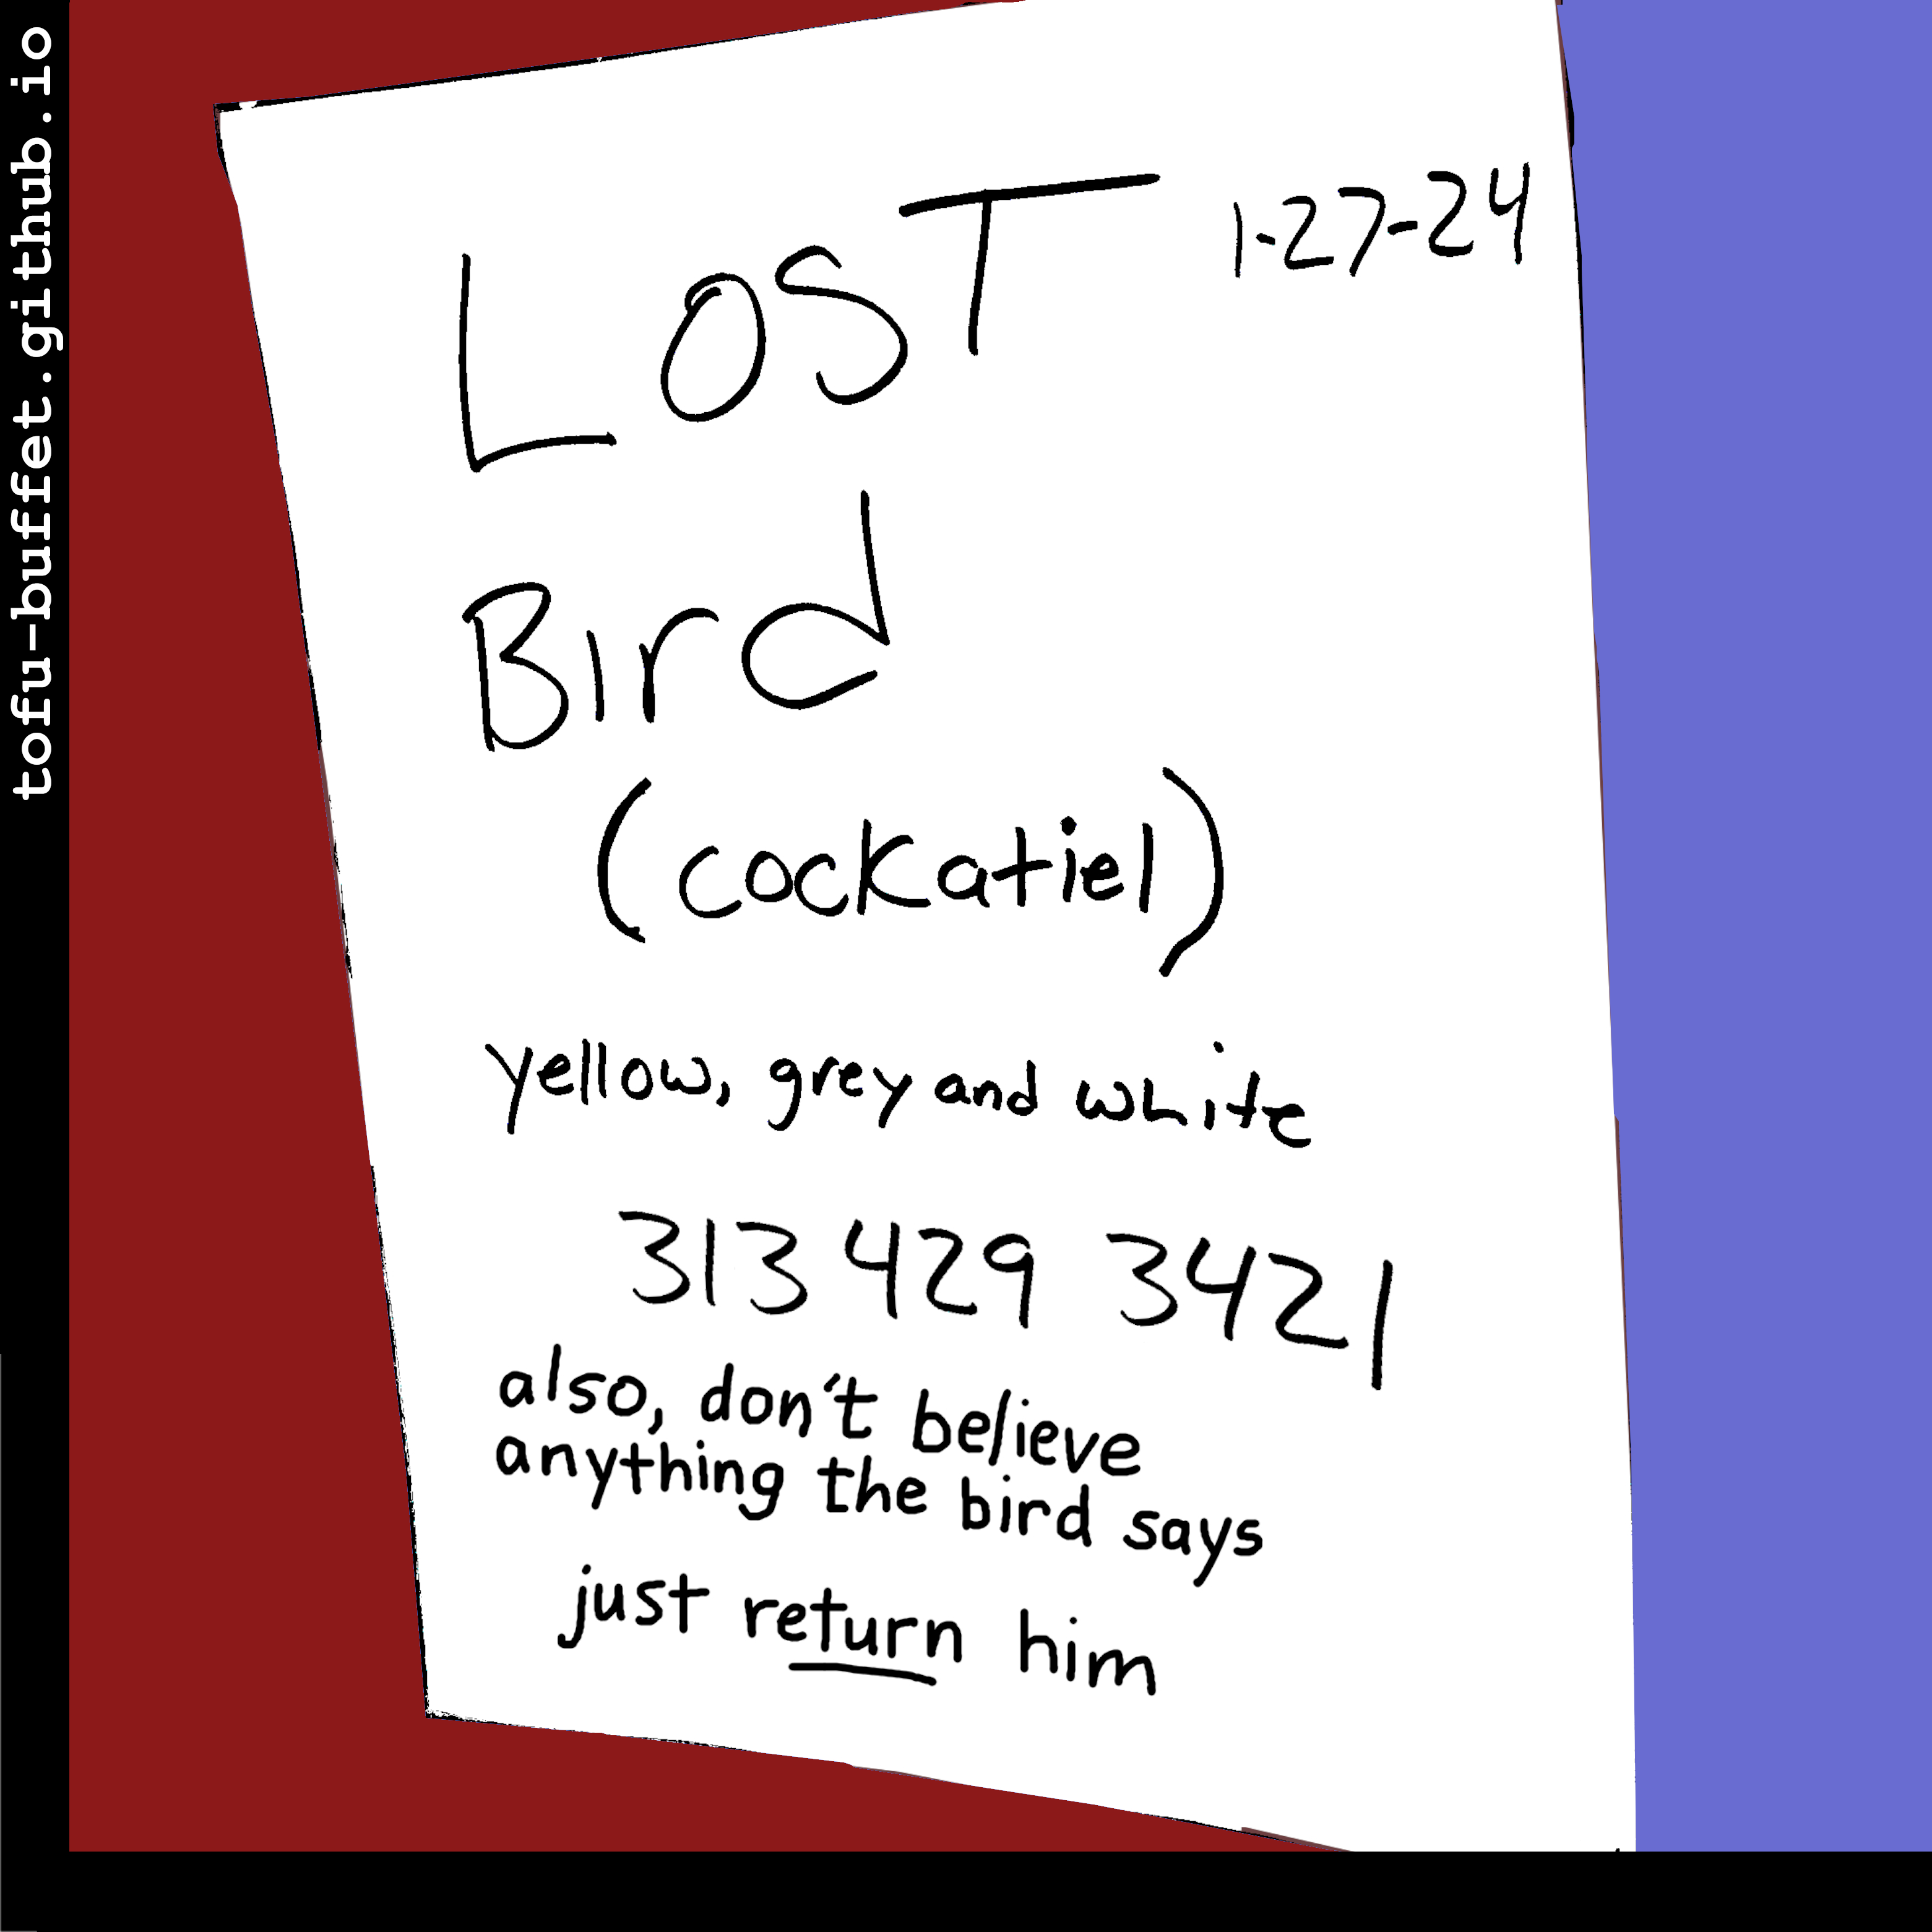 tofu-buffet.github.io
LOST 1-27-24
Bird
(cockatiel)
yellow, grey and white
313 429 3421
also, don't believe
anything the bird says
just return him